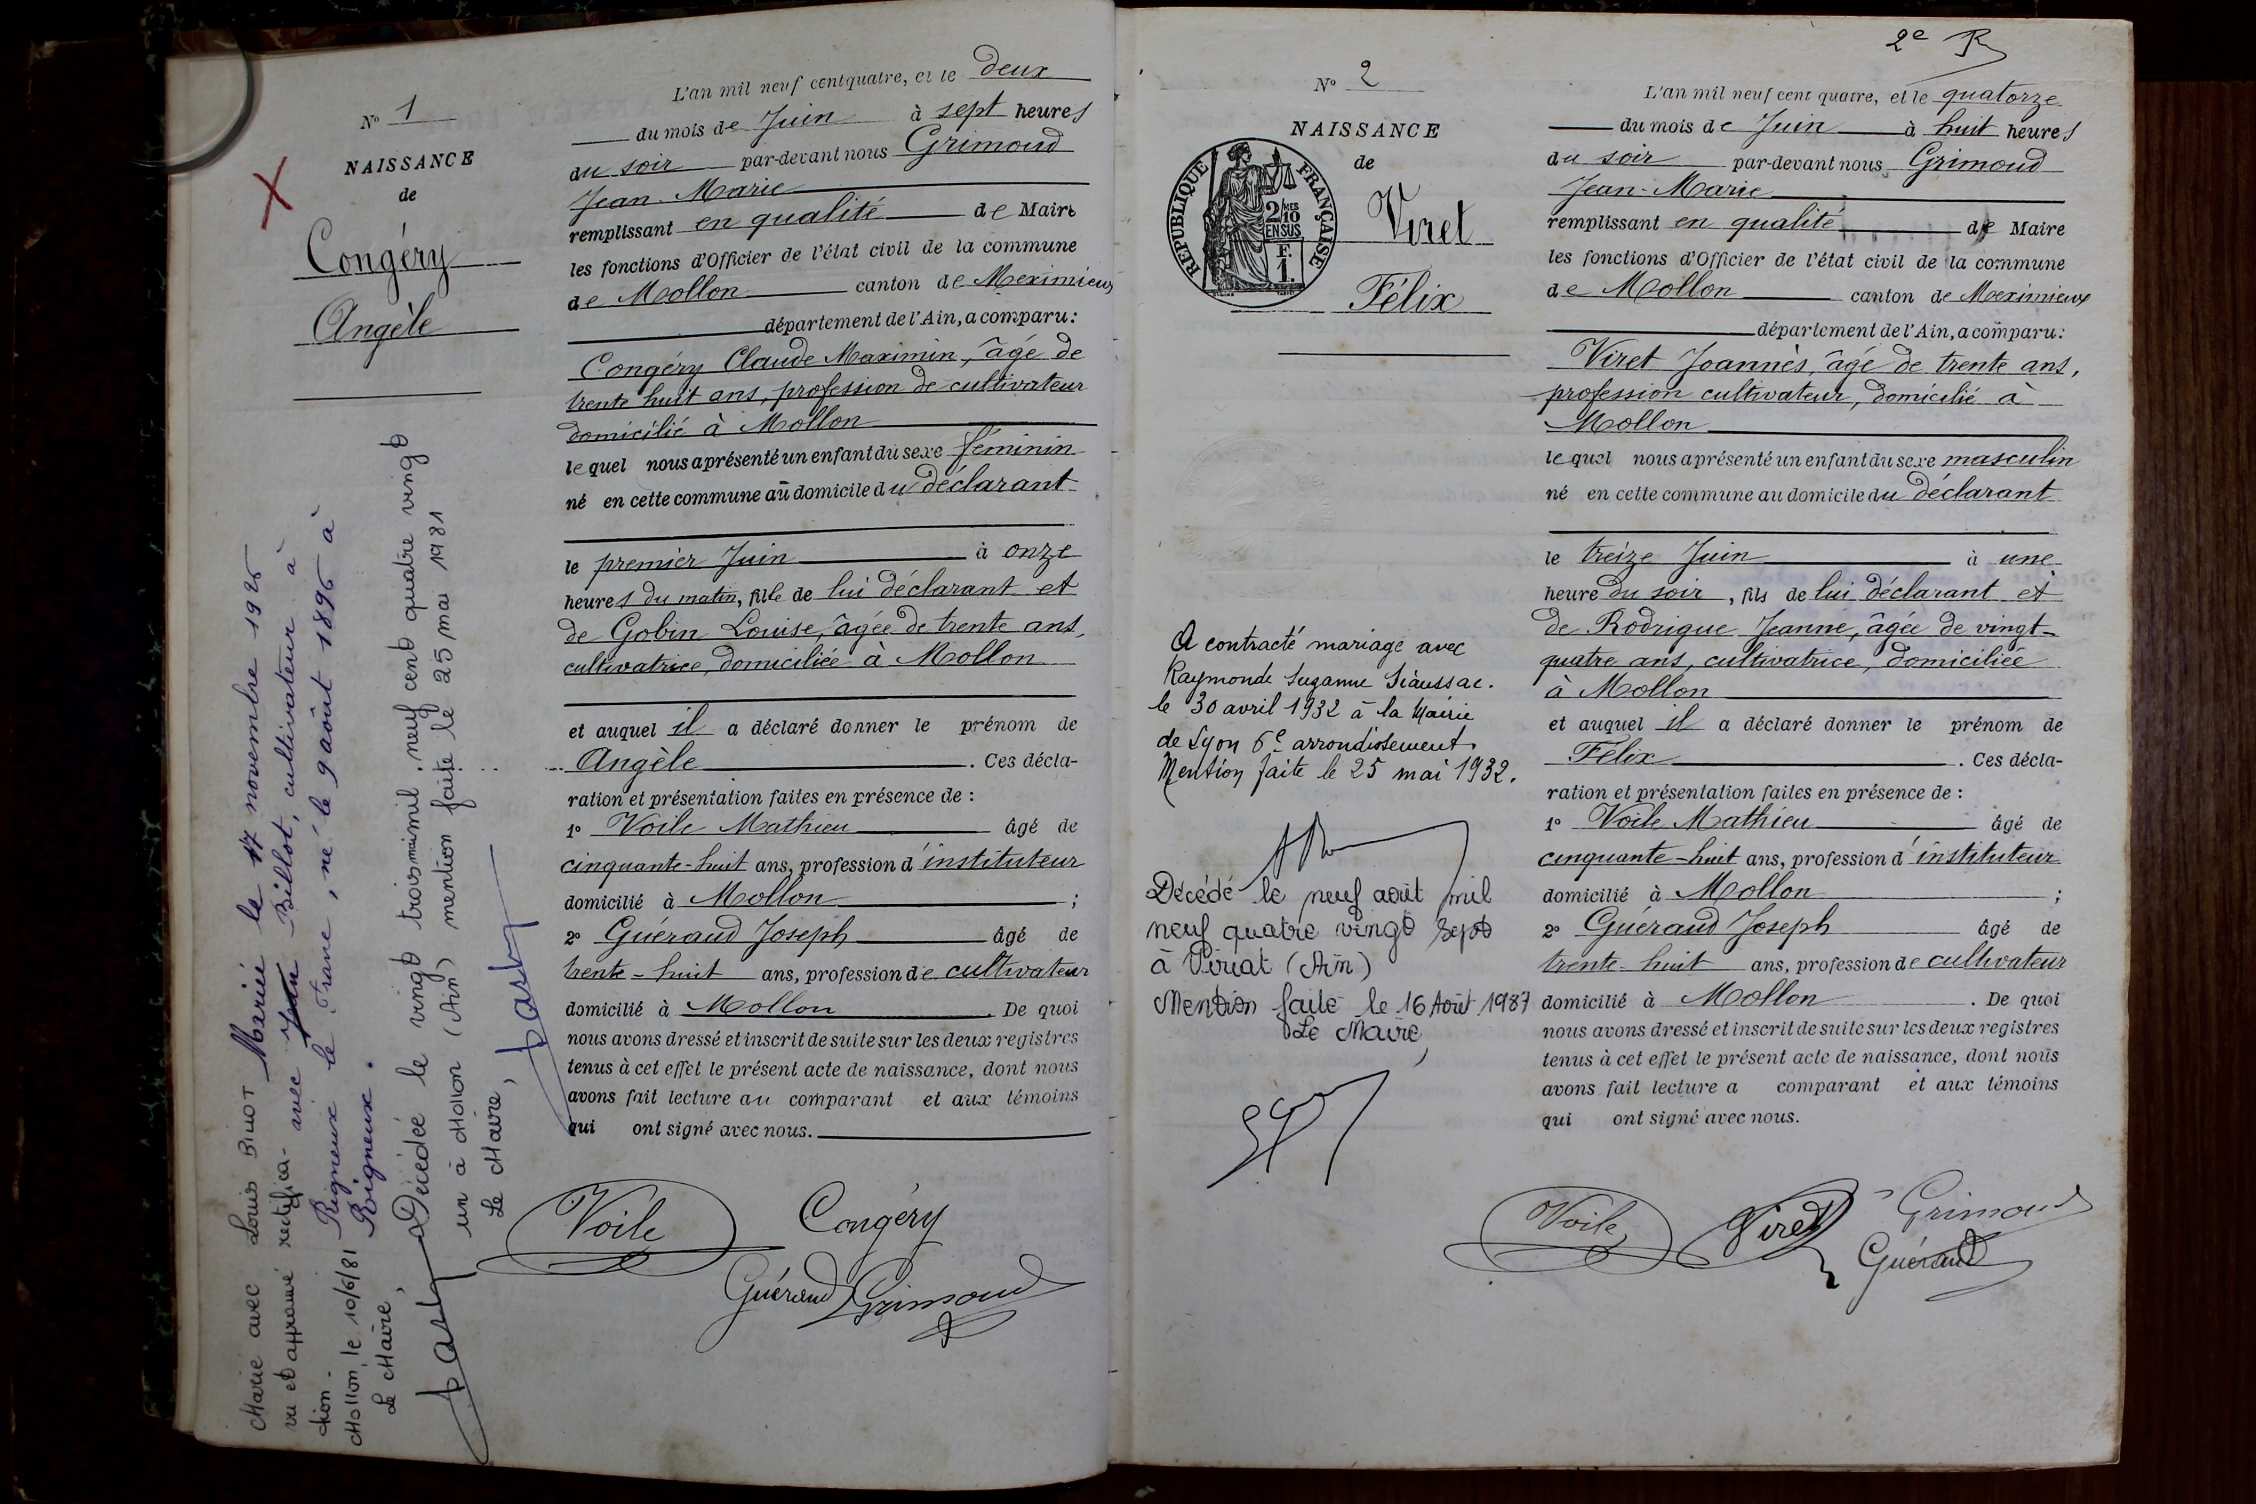 N° 1
NAISSANCE
de
Congéry
Angèle
L'an mil neuf cent quatre, et le deux
du mois de Juin à sept heures
du soir par-devant nous Grimoud
Jean-Marie
remplissant en qualité de Maire
les fonctions d'Officier de l'état civil de la commune
de Mollon canton de Meximieux
département de l'Ain, a comparu :
Congéry Claude Maximin, âgé de
trente huit ans, profession de cultivateur
domicilié à Mollon
lequel nous a présenté un enfant du sexe féminin
né en cette commune au domicile du déclarant
le premier Juin à onze
heures du matin, fille de lui déclarant et
de Gobin Louise, âgée de trente ans,
cultivatrice, domiciliée à Mollon
et auquel il a déclaré donner le prénom de
Angèle. Ces décla-
ration et présentation faites en présence de :
1° Voile Mathieu âgé de
cinquante-huit ans, profession d'instituteur
domicilié à Mollon ;
2° Guéraud Joseph âgé de
trente-huit ans, profession de cultivateur
domicilié à Mollon. De quoi
nous avons dressé et inscrit de suite sur les deux registres
tenus à cet effet le présent acte de naissance, dont nous
avons fait lecture au comparant et aux témoins
qui ont signé avec nous.
Voile Congéry
Guéraud Grimoud
Mariée le 17 novembre 1925
avec Jean Billot, cultivateur à
Rigneux le Franc, né le 9 août 1896 à
Rigneux.
Marié avec Louis Billot
vu et approuvé rectifica-
tion -
Mollon, le 10/6/81
Le Maire,
Décédée le vingt trois mai mil neuf cent quatre vingt
un à Mollon (Ain) mention faite le 25 mai 1981
Le Maire,
2e R
N° 2
NAISSANCE
de
Viret
Félix
RÉPUBLIQUE FRANÇAISE
2 MES
10
EN SUS
F.
1.
L'an mil neuf cent quatre, et le quatorze
du mois de Juin à huit heures
du soir par-devant nous Grimoud
Jean-Marie
remplissant en qualité de Maire
les fonctions d'Officier de l'état civil de la commune
de Mollon canton de Meximieux
département de l'Ain, a comparu :
Viret Joannès, âgé de trente ans,
profession cultivateur, domicilié à
Mollon
lequel nous a présenté un enfant du sexe masculin
né en cette commune au domicile du déclarant
le treize Juin à une
heure du soir, fils de lui déclarant et
de Rodrigue Jeanne, âgée de vingt-
quatre ans, cultivatrice, domiciliée
à Mollon
et auquel il a déclaré donner le prénom de
Félix. Ces décla-
ration et présentation faites en présence de :
1° Voile Mathieu âgé de
cinquante-huit ans, profession d'instituteur
domicilié à Mollon ;
2° Guéraud Joseph âgé de
trente-huit ans, profession de cultivateur
domicilié à Mollon. De quoi
nous avons dressé et inscrit de suite sur les deux registres
tenus à cet effet le présent acte de naissance, dont nous
avons fait lecture a comparant et aux témoins
qui ont signé avec nous.
Voile Viret Grimoud
Guéraud
A contracté mariage avec
Raymonde Suzanne
le 30 avril 1932 à la Mairie
de Lyon 6e arrondissement.
Mention faite le 25 mai 1932.
Décédé le neuf août mil
neuf quatre vingt sept
à Viriat (Ain)
Mention faite le 16 Août 1987
Le Maire,